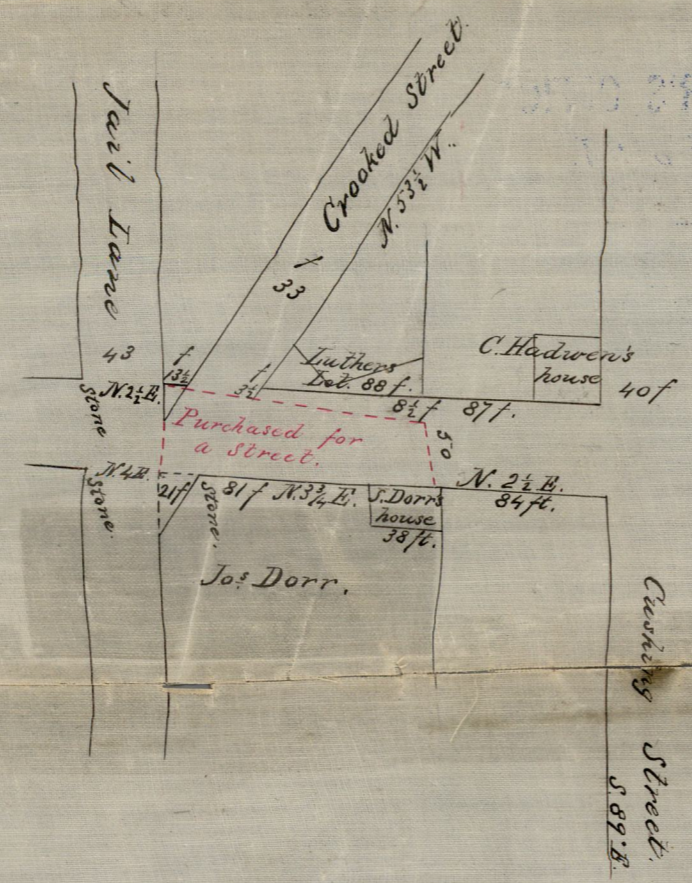 Jail Lane
43
Crooked Street.
f
33
N. 53½ W.
f
13½
f
3½
N. 2½ E.
Stone
Luthers
Lot. 88 f.
C. Hadwen's
house
40 f
8½ f
87 f.
50
Purchased for
a Street.
N. 4 E.
Stone.
21 f
Stone.
81 f
N. 3¾ E.
S. Dorr's
house
38 ft.
N. 2½ E.
84 ft.
Jos. Dorr.
Cushing Street.
S. 89° E.